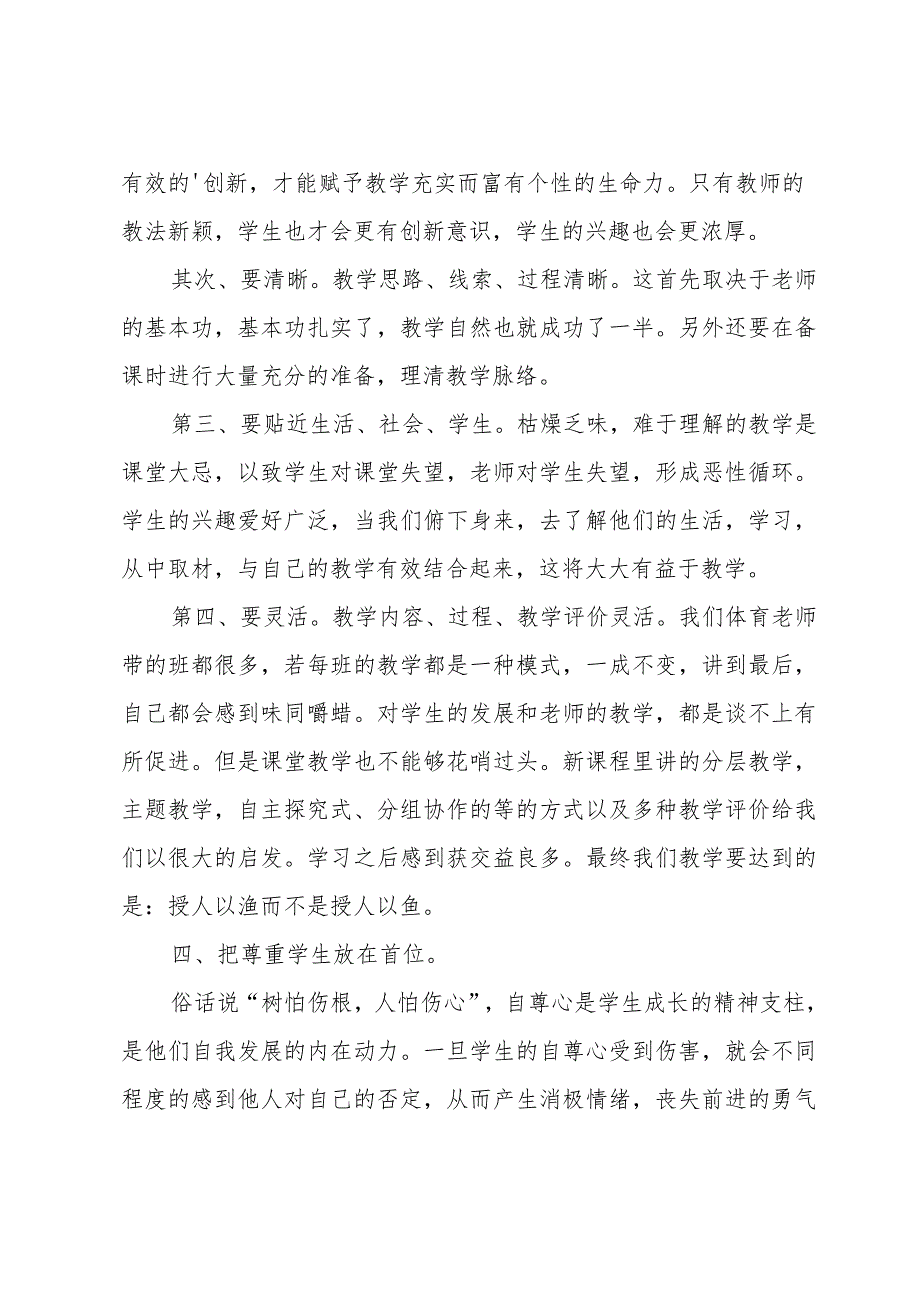 有效的'创新，才能赋予教学充实而富有个性的生命力。只有教师的
教法新颖，学生也才会更有创新意识，学生的兴趣也会更浓厚。
其次、要清晰。教学思路、线索、过程清晰。这首先取决于老师
的基本功，基本功扎实了，教学自然也就成功了一半。另外还要在备
课时进行大量充分的准备，理清教学脉络。
第三、要贴近生活、社会、学生。枯燥乏味，难于理解的教学是
课堂大忌，以致学生对课堂失望，老师对学生失望，形成恶性循环。
学生的兴趣爱好广泛，当我们俯下身来，去了解他们的生活，学习，
从中取材，与自己的教学有效结合起来，这将大大有益于教学。
第四、要灵活。教学内容、过程、教学评价灵活。我们体育老师
带的班都很多，若每班的教学都是一种模式，一成不变，讲到最后，
自己都会感到味同嚼蜡。对学生的发展和老师的教学，都是谈不上有
所促进。但是课堂教学也不能够花哨过头。新课程里讲的分层教学，
主题教学，自主探究式、分组协作的等的方式以及多种教学评价给我
们以很大的启发。学习之后感到获交益良多。最终我们教学要达到的
是：授人以渔而不是授人以鱼。
四、把尊重学生放在首位。
俗话说“树怕伤根，人怕伤心”，自尊心是学生成长的精神支柱，
是他们自我发展的内在动力。一旦学生的自尊心受到伤害，就会不同
程度的感到他人对自己的否定，从而产生消极情绪，丧失前进的勇气